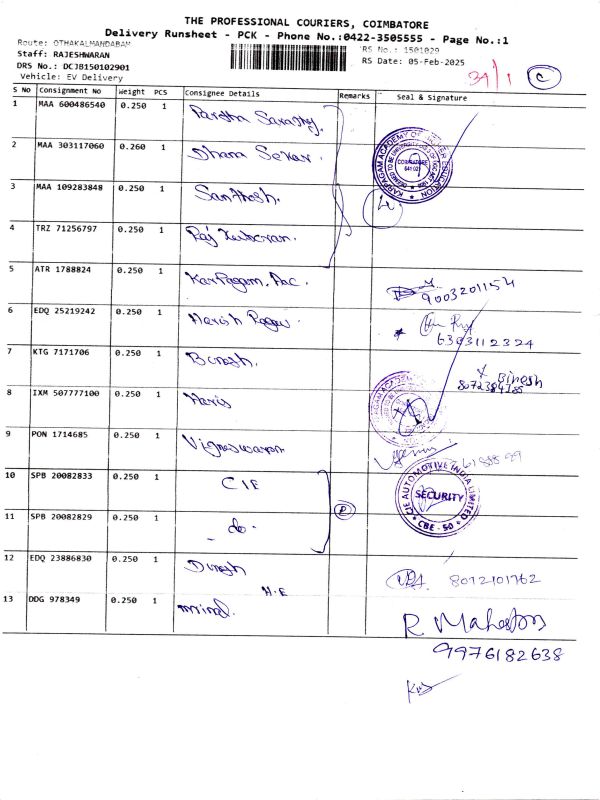 THE PROFESSIONAL COURIERS, COIMBATORE
Delivery Runsheet - PCK - Phone No.:0422-3505555 - Page No.:1
Route: OTHAKALMANDABAM
RS No.: 1501029
Staff: RAJESHWARAN
RS Date: 05-Feb-2025
DRS No.: DCJB150102901
Vehicle: EV Delivery
39/1 C
S No Consignment No Weight PCS Consignee Details Remarks Seal & Signature
1 MAA 600486540 0.250 1
2 MAA 303117060 0.260 1 Dhana Sekar.
KARPAGAM ACADEMY OF HIGHER EDUCATION
COIMBATORE
641 021
3 MAA 109283848 0.250 1 Santhosh.
4 TRZ 71256797 0.250 1
5 ATR 1788824 0.250 1 Karpagam.
9003201154
6 EDQ 25219242 0.250 1 Harish
6383112324
7 KTG 7171706 0.250 1 Binesh.
Binesh
8 IXM 507777100 0.250 1 Haris
9 PON 1714685 0.250 1 Vigneswaran
10 SPB 20082833 0.250 1 CIE
CIE AUTOMOTIVE INDIA LIMITED
SECURITY
CBE - 50
11 SPB 20082829 0.250 1 - do -
P
12 EDQ 23886830 0.250 1 Dinesh
8072101762
H.E
13 DDG 978349 0.250 1
R
9976182638